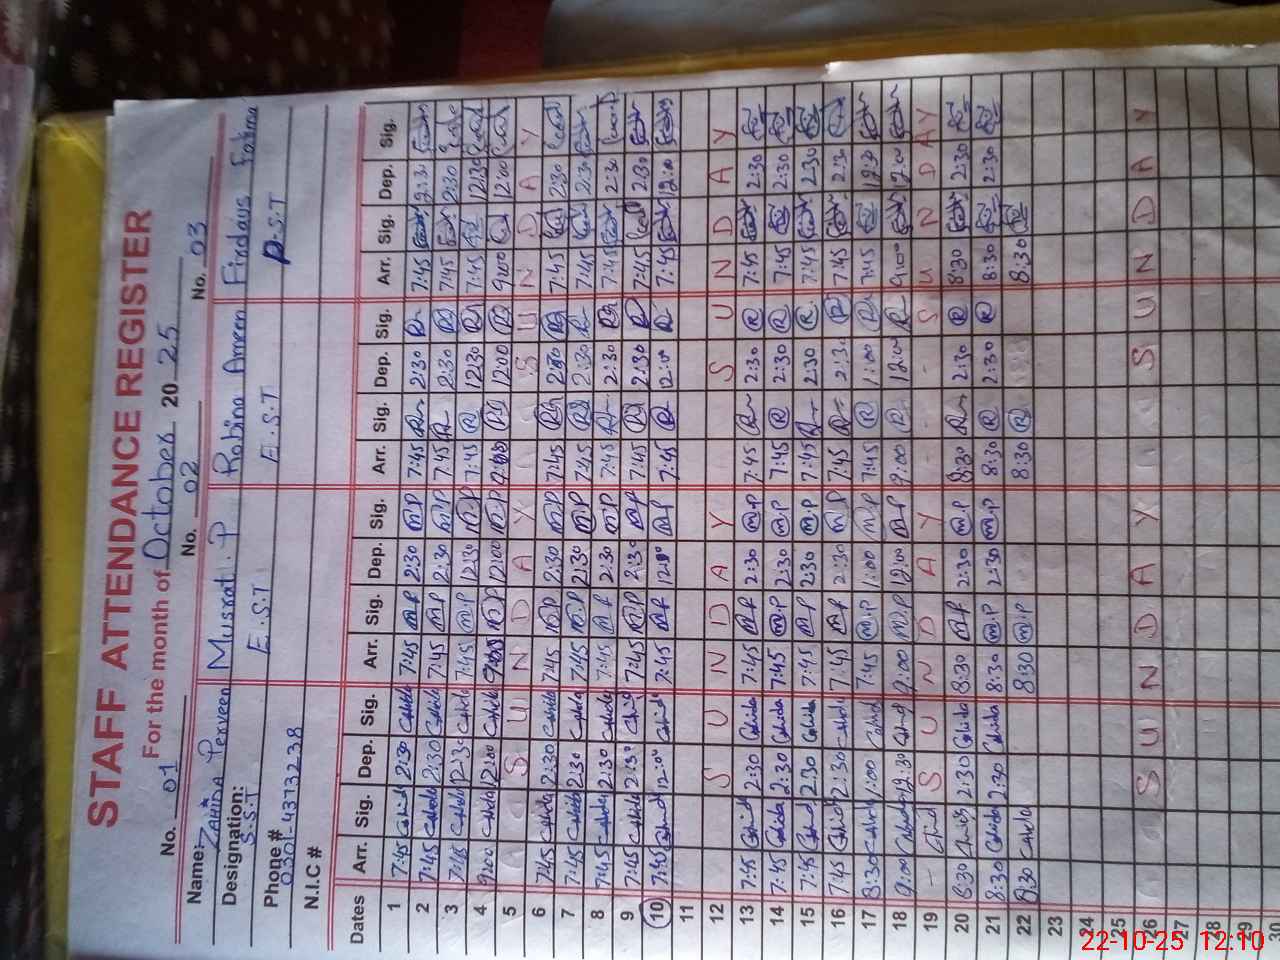 STAFF ATTENDANCE REGISTER
For the month of October 20 25
No. 01 No. 02 No. 03
Name: Zahida Perveen Musrat . P Robina Ameen Firdaus Fatima
Designation: S.S.T E.S.T E.S.T P.S.T
Phone # 0301-4373238
N.I.C #
Dates Arr. Sig. Dep. Sig. Arr. Sig. Dep. Sig. Arr. Sig. Dep. Sig. Arr. Sig. Dep. Sig.
1 7:45 2:30 7:45 M.P 2:30 M.P 7:45 2:30 7:45 2:30
2 7:45 2:30 7:45 M.P 2:30 M.P 7:45 2:30 7:45 2:30
3 7:45 12:30 7:45 M.P 12:30 M.P 7:45 12:30 7:45 12:30
4 9:00 12:00 9:00 M.P 12:00 M.P 9:00 12:00 9:00 12:00
5 S U N D A Y S U N D A Y
6 7:45 2:30 7:45 M.P 2:30 M.P 7:45 2:30 7:45 2:30
7 7:45 2:30 7:45 M.P 2:30 M.P 7:45 2:30 7:45 2:30
8 7:45 2:30 7:45 M.P 2:30 M.P 7:45 2:30 7:45 2:30
9 7:45 2:30 7:45 M.P 2:30 M.P 7:45 2:30 7:45 2:30
10 7:45 12:00 7:45 M.P 12:00 M.P 7:45 12:00 7:45 12:00
11
12 S U N D A Y S U N D A Y
13 7:45 2:30 7:45 M.P 2:30 M.P 7:45 R 2:30 R 7:45 2:30
14 7:45 2:30 7:45 M.P 2:30 M.P 7:45 R 2:30 R 7:45 2:30
15 7:45 2:30 7:45 M.P 2:30 M.P 7:45 2:30 R 7:45 2:30
16 7:45 2:30 7:45 M.P 2:30 M.P 7:45 2:30 R 7:45 2:30
17 8:30 1:00 7:45 M.P 1:00 M.P 7:45 R 1:00 R 7:45 12:30
18 9:00 12:30 9:00 M.P 12:00 M.P 9:00 R 12:00 R 9:00 12:00
19 - S U N D A Y - - - S U N D A Y
20 8:30 2:30 8:30 M.P 2:30 M.P 8:30 2:30 R 8:30 2:30
21 8:30 2:30 8:30 M.P 2:30 M.P 8:30 R 2:30 R 8:30 2:30
22 8:30 8:30 M.P 8:30 R 8:30
23
24
25
26 S U N D A Y S U N D A Y
27
28
29
30
22-10-25 12:10